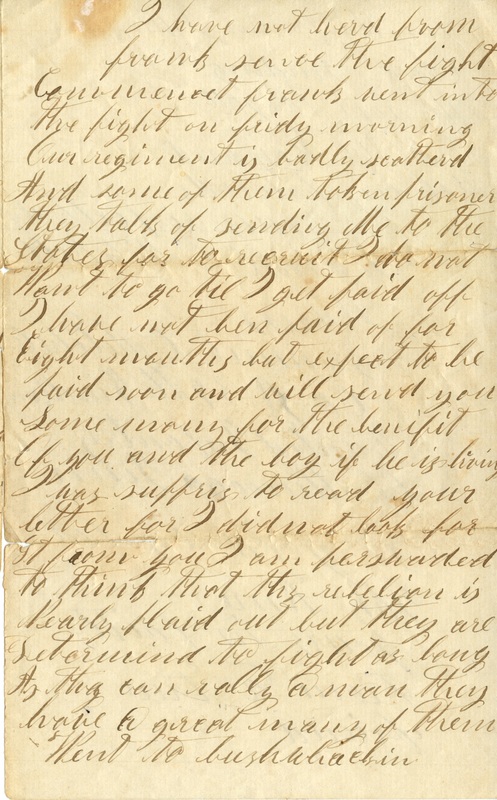 I have not herd from
frank sence the fight
Commencet frank went into
the fight on fridy morning
Our regiment is badly scatterd
And some of them taken prisoner
they talk of sending Me to the
States for to recruit I do not
Want to go til I get paid off
I have not ben paid of for
Eight months but expect to be
paid soon and will send you
some mony for the benifit
Of you and the boy if he is living
I was suppris to read your
letter for I did not look for
It from you I am parshaded
to think that this rebelion is
Nearly plaid out but they are
Determind to fight as long
As they can rally a man they
have a great many of them
Went to bushwhackin